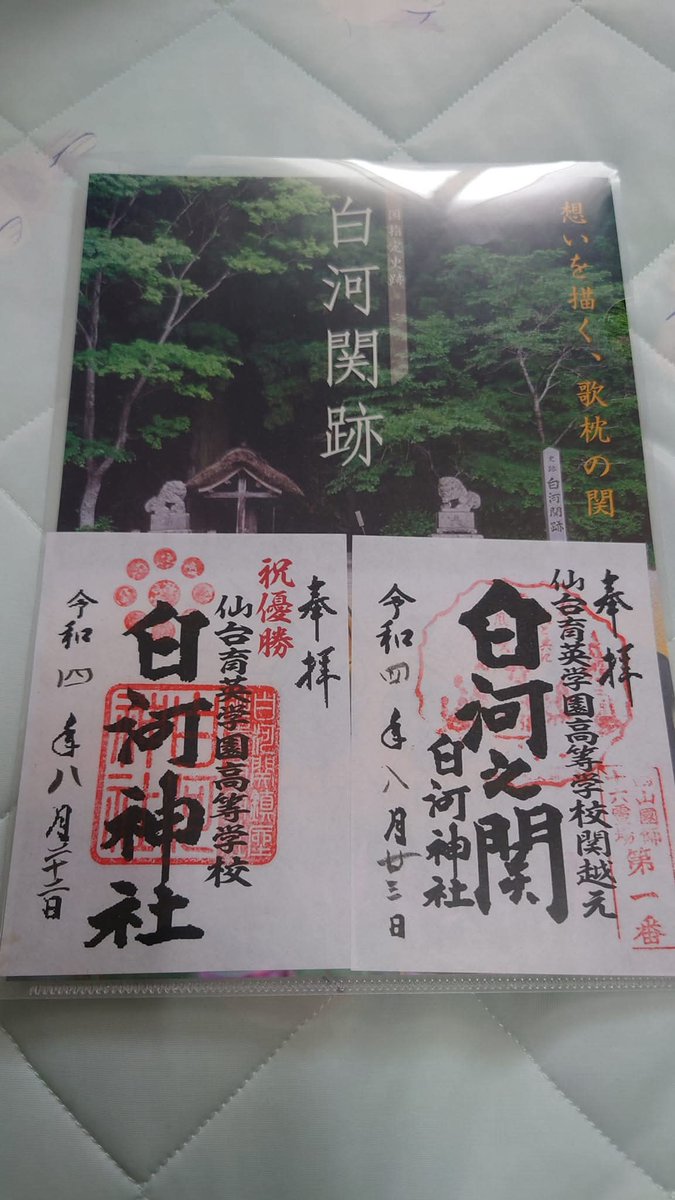 想いを描く、歌枕の関
国指定史跡
白河関跡
史跡 白河関跡
奉拝
仙台育英学園高等学校関越元
白河之関
白河神社
令和四年八月廿三日
第一番
奉拝
祝優勝
仙台育英学園高等学校
白河神社
令和四年八月二十二日
白河関鎮座